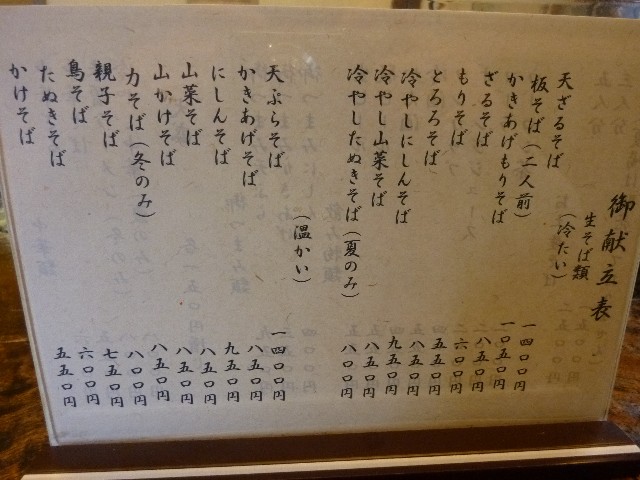 御献立表
生そば類
(冷たい)
天ざるそば 一四〇〇円
板そば(二人前) 一〇五〇円
かきあげもりそば 八五〇円
ざるそば 六〇〇円
もりそば 五五〇円
とろろそば 八五〇円
冷やしにしんそば 九五〇円
冷やし山菜そば 八五〇円
冷やしたぬきそば(夏のみ) 八〇〇円
(温かい)
天ぷらそば 一四〇〇円
かきあげそば 八五〇円
にしんそば 九五〇円
山菜そば 八五〇円
山かけそば 八五〇円
力そば(冬のみ) 八五〇円
親子そば 八〇〇円
鳥そば 七五〇円
たぬきそば 六〇〇円
かけそば 五五〇円